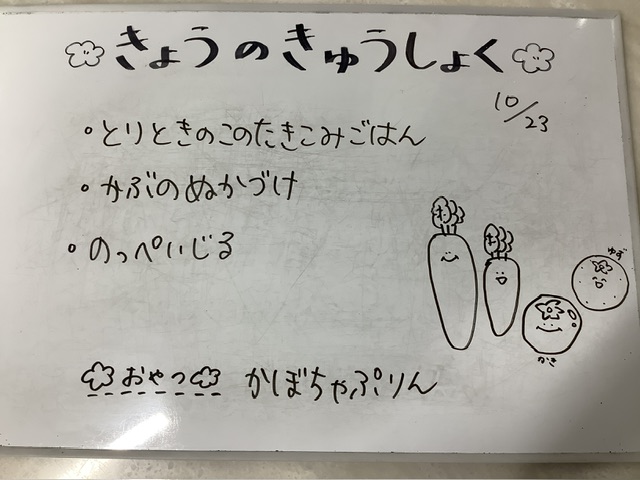 きょうのきゅうしょく
10/23
・とりときのこのたきこみごはん
・かぶのぬかづけ
・のっぺいじる
ゆず
かき
おやつ かぼちゃぷりん